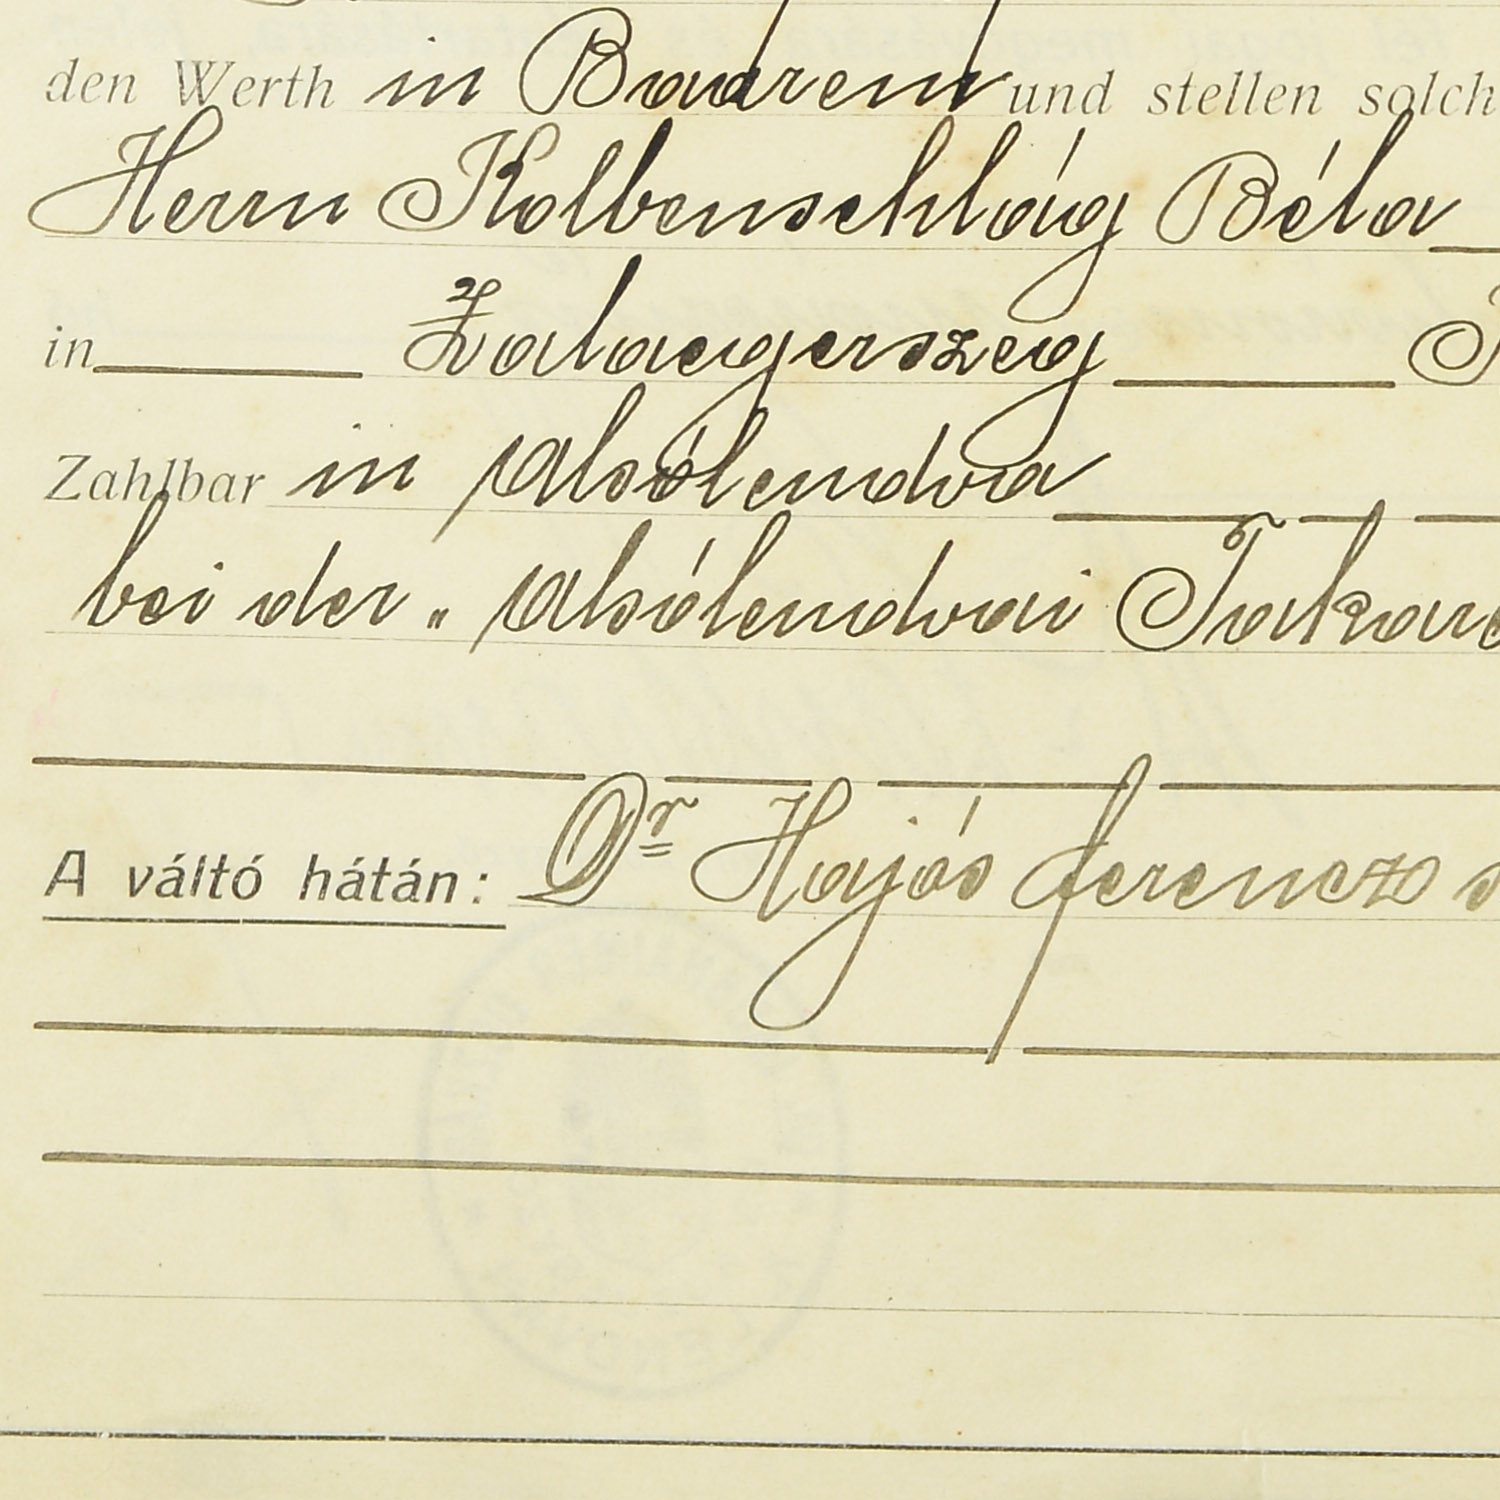 den Werth in Baarem und stellen solch
Herrn Kolbenschlág Béla
in Zalaegerszeg
Zahlbar in Alsólendva
bei der „Alsólendvai Takaré
A váltó hátán: Dr Hajós Ferencz s